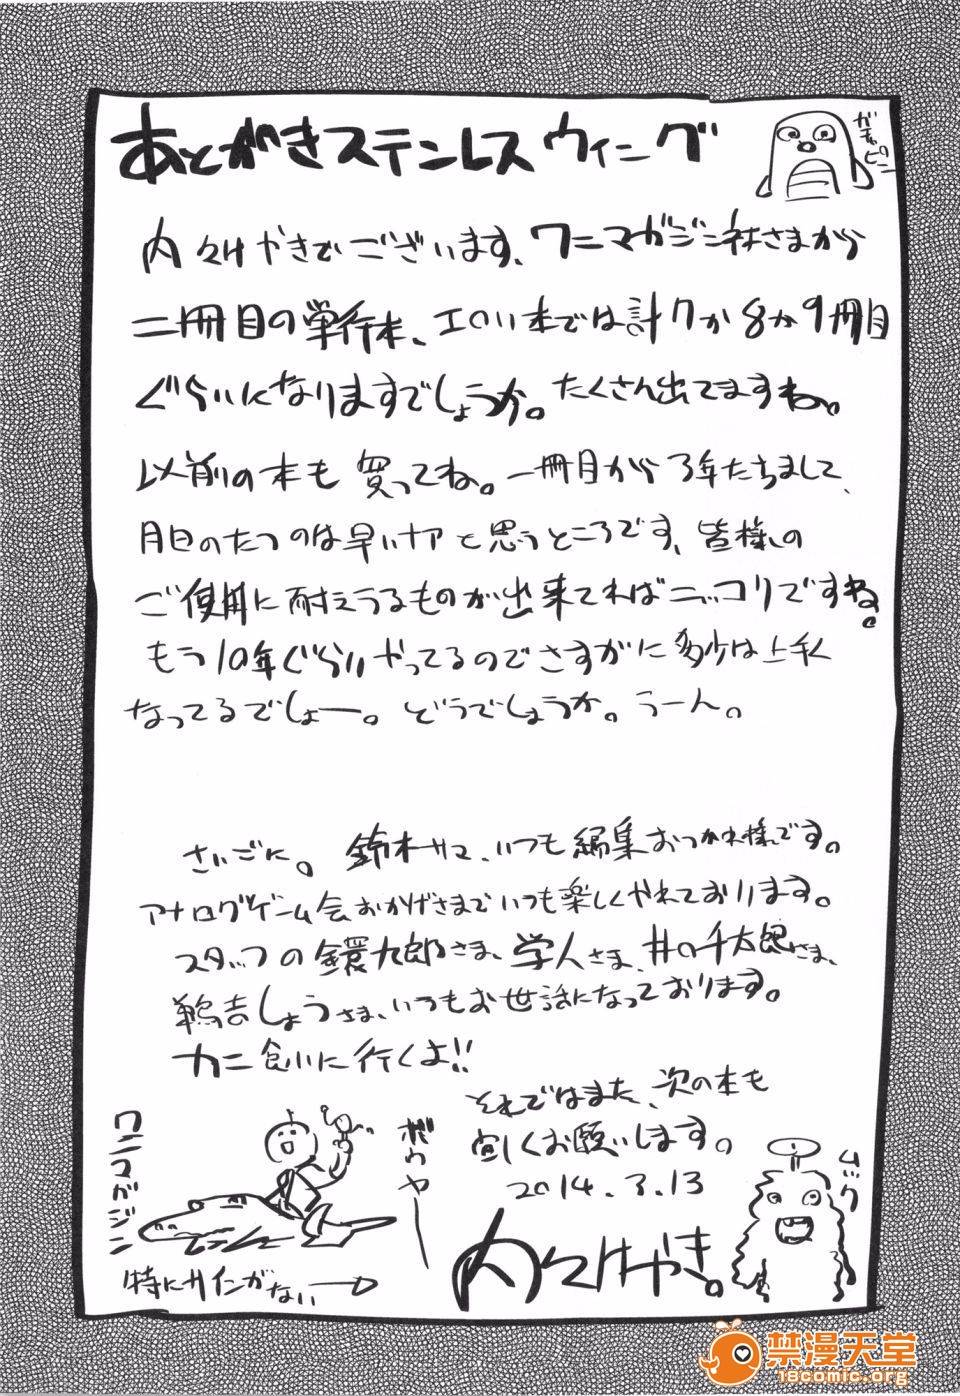 あとがきステンレスウィニング
ガチャピン
内々けやきでございます、ワニマガジン社さまから
二冊目の単行本、エロい本では計7か8か9冊目
ぐらいになりますでしょうか。たくさん出てますね。
以前の本も買ってね。一冊目から3年たちまして、
月日のたつのは早いナアと思うところです、皆様の
ご使用に耐えうるものが出来てればニッコリですね。
もう10年ぐらいやってるのでさすがに多少は上手く
なってるでしょー。どうでしょうか。うーん。
さいごに。鈴木サマ、いつも編集おつかれ様です。
アナログゲーム会おかげさまでいつも楽しくやれております。
スタッフの鐶九郎さま、学人さま、井口千太郎さま、
鶏吉しょうさま、いつもお世話になっております。
カニ食いに行くよ!!
それではまた、次の本も
宜しくお願いします。
2014.3.13
内々けやき。
ワニマガジン
ボウヤー
ムック
特にサインがない
禁漫天堂
18comic.org